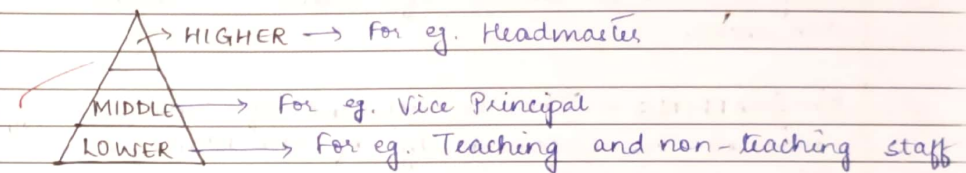 HIGHER → For eg. Headmaster
MIDDLE → For eg. Vice Principal
LOWER → For eg. Teaching and non-teaching staff